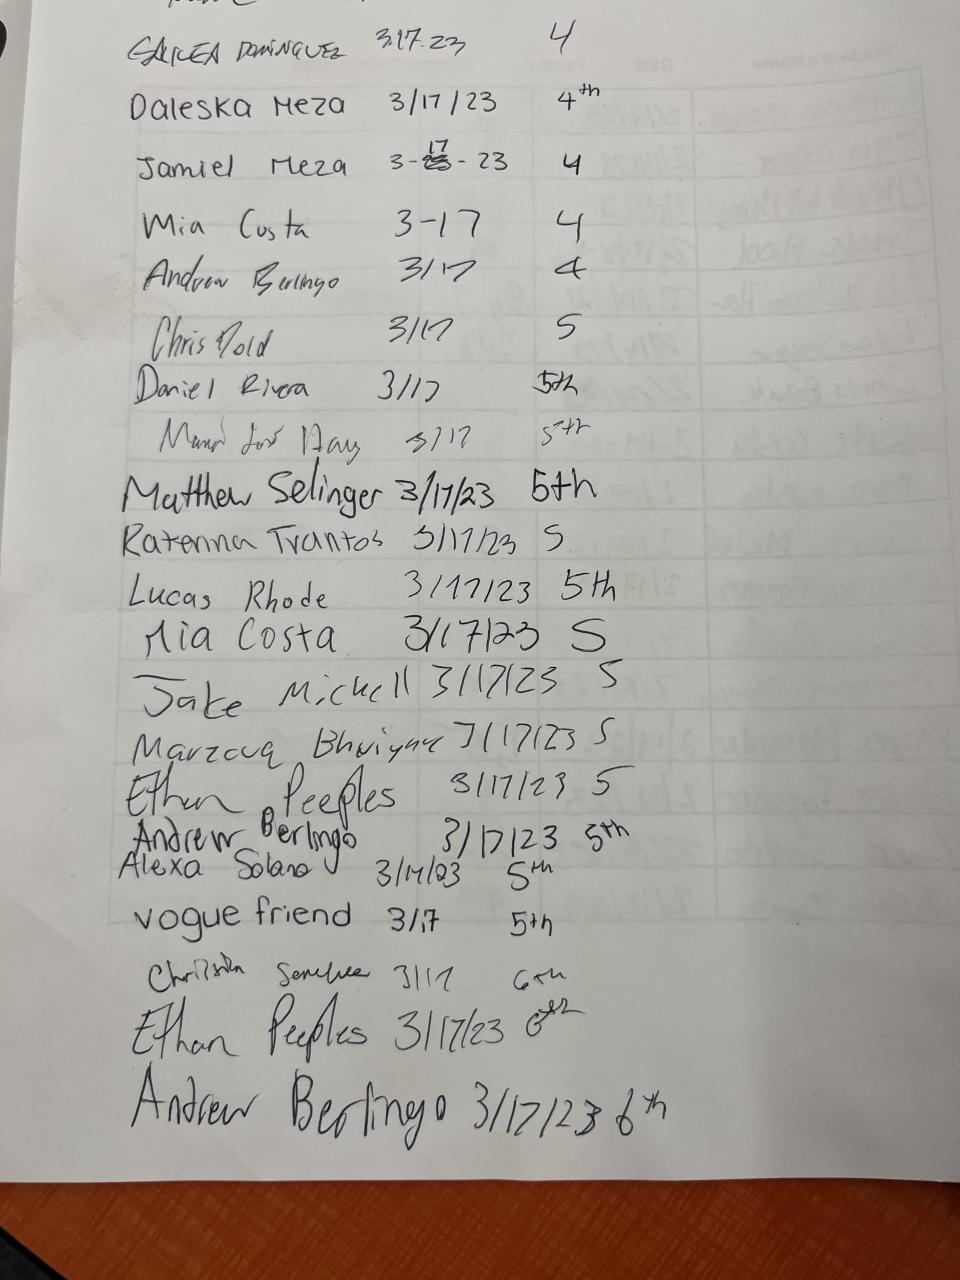 DOMINGUEZ 3.17.23 4
Daleska Meza 3/17/23 4th
Jamiel Meza 3-17-23 4
Mia Costa 3-17 4
Andrew Berlingo 3/17 4
Chris Dold 3/17 5
Daniel Rivera 3/17 5th
3/17 5th
Matthew Selinger 3/17/23 5th
Katerina Trantos 3/17/23 5
Lucas Rhode 3/17/23 5th
Mia Costa 3/17/23 5
Jake Mickell 3/17/23 5
Marzouq Bhuiyan 3/17/23 5
Ethan Peeples 3/17/23 5
Andrew Berlingo 3/17/23 5th
Alexa Solano 3/17/23 5th
vogue friend 3/17 5th
3/17 6th
Ethan Peeples 3/17/23 6th
Andrew Berlingo 3/17/23 6th